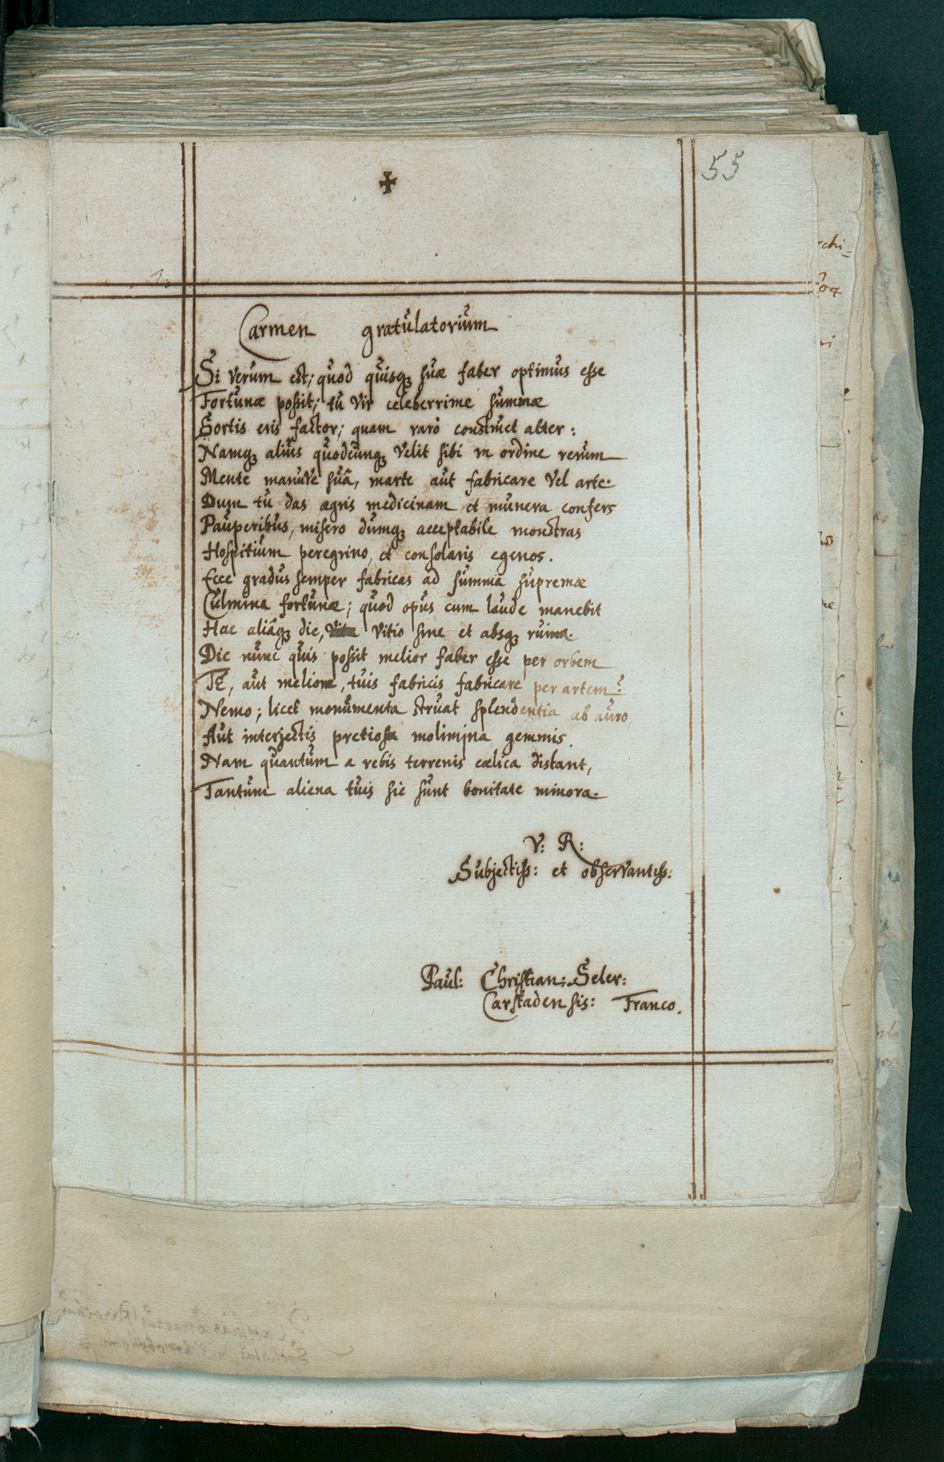 55
✠
Carmen gratulatorium
Si verum est; quod quisq; suæ faber optimus esse
Fortunæ possit; tu vir celeberrime summæ
Sortis eris factor; quam raro construet alter:
Namq; alius quodcunq; velit sibi in ordine rerum
Mente manuve suâ, marte aut fabricare vel arte.
Dum tu das ægris medicinam et munera confers
Pauperibus, misero dumq; acceptabile monstras
Hospitium peregrino, et consolaris egenos.
Ecce gradus semper fabricas ad summa supremæ
Culmina fortunæ; quod opus cum laude manebit
Hac aliâq; die, vitio sine et absq; ruina.
Dic nunc quis possit melior faber esse per orbem
TE, aut meliora, tuis fabricis fabricare per artem?
Nemo; licet monumenta struat splendentia ab auro
Aut interjectis pretiosa molimina gemmis.
Nam quantum a rebis terrenis cœlica distant,
Tantum aliena tuis sic sunt bonitate minora.
V: R:
Subjectiss: et observantiss:
Paul: Christian: Seler:
Carstadensis: Franco.